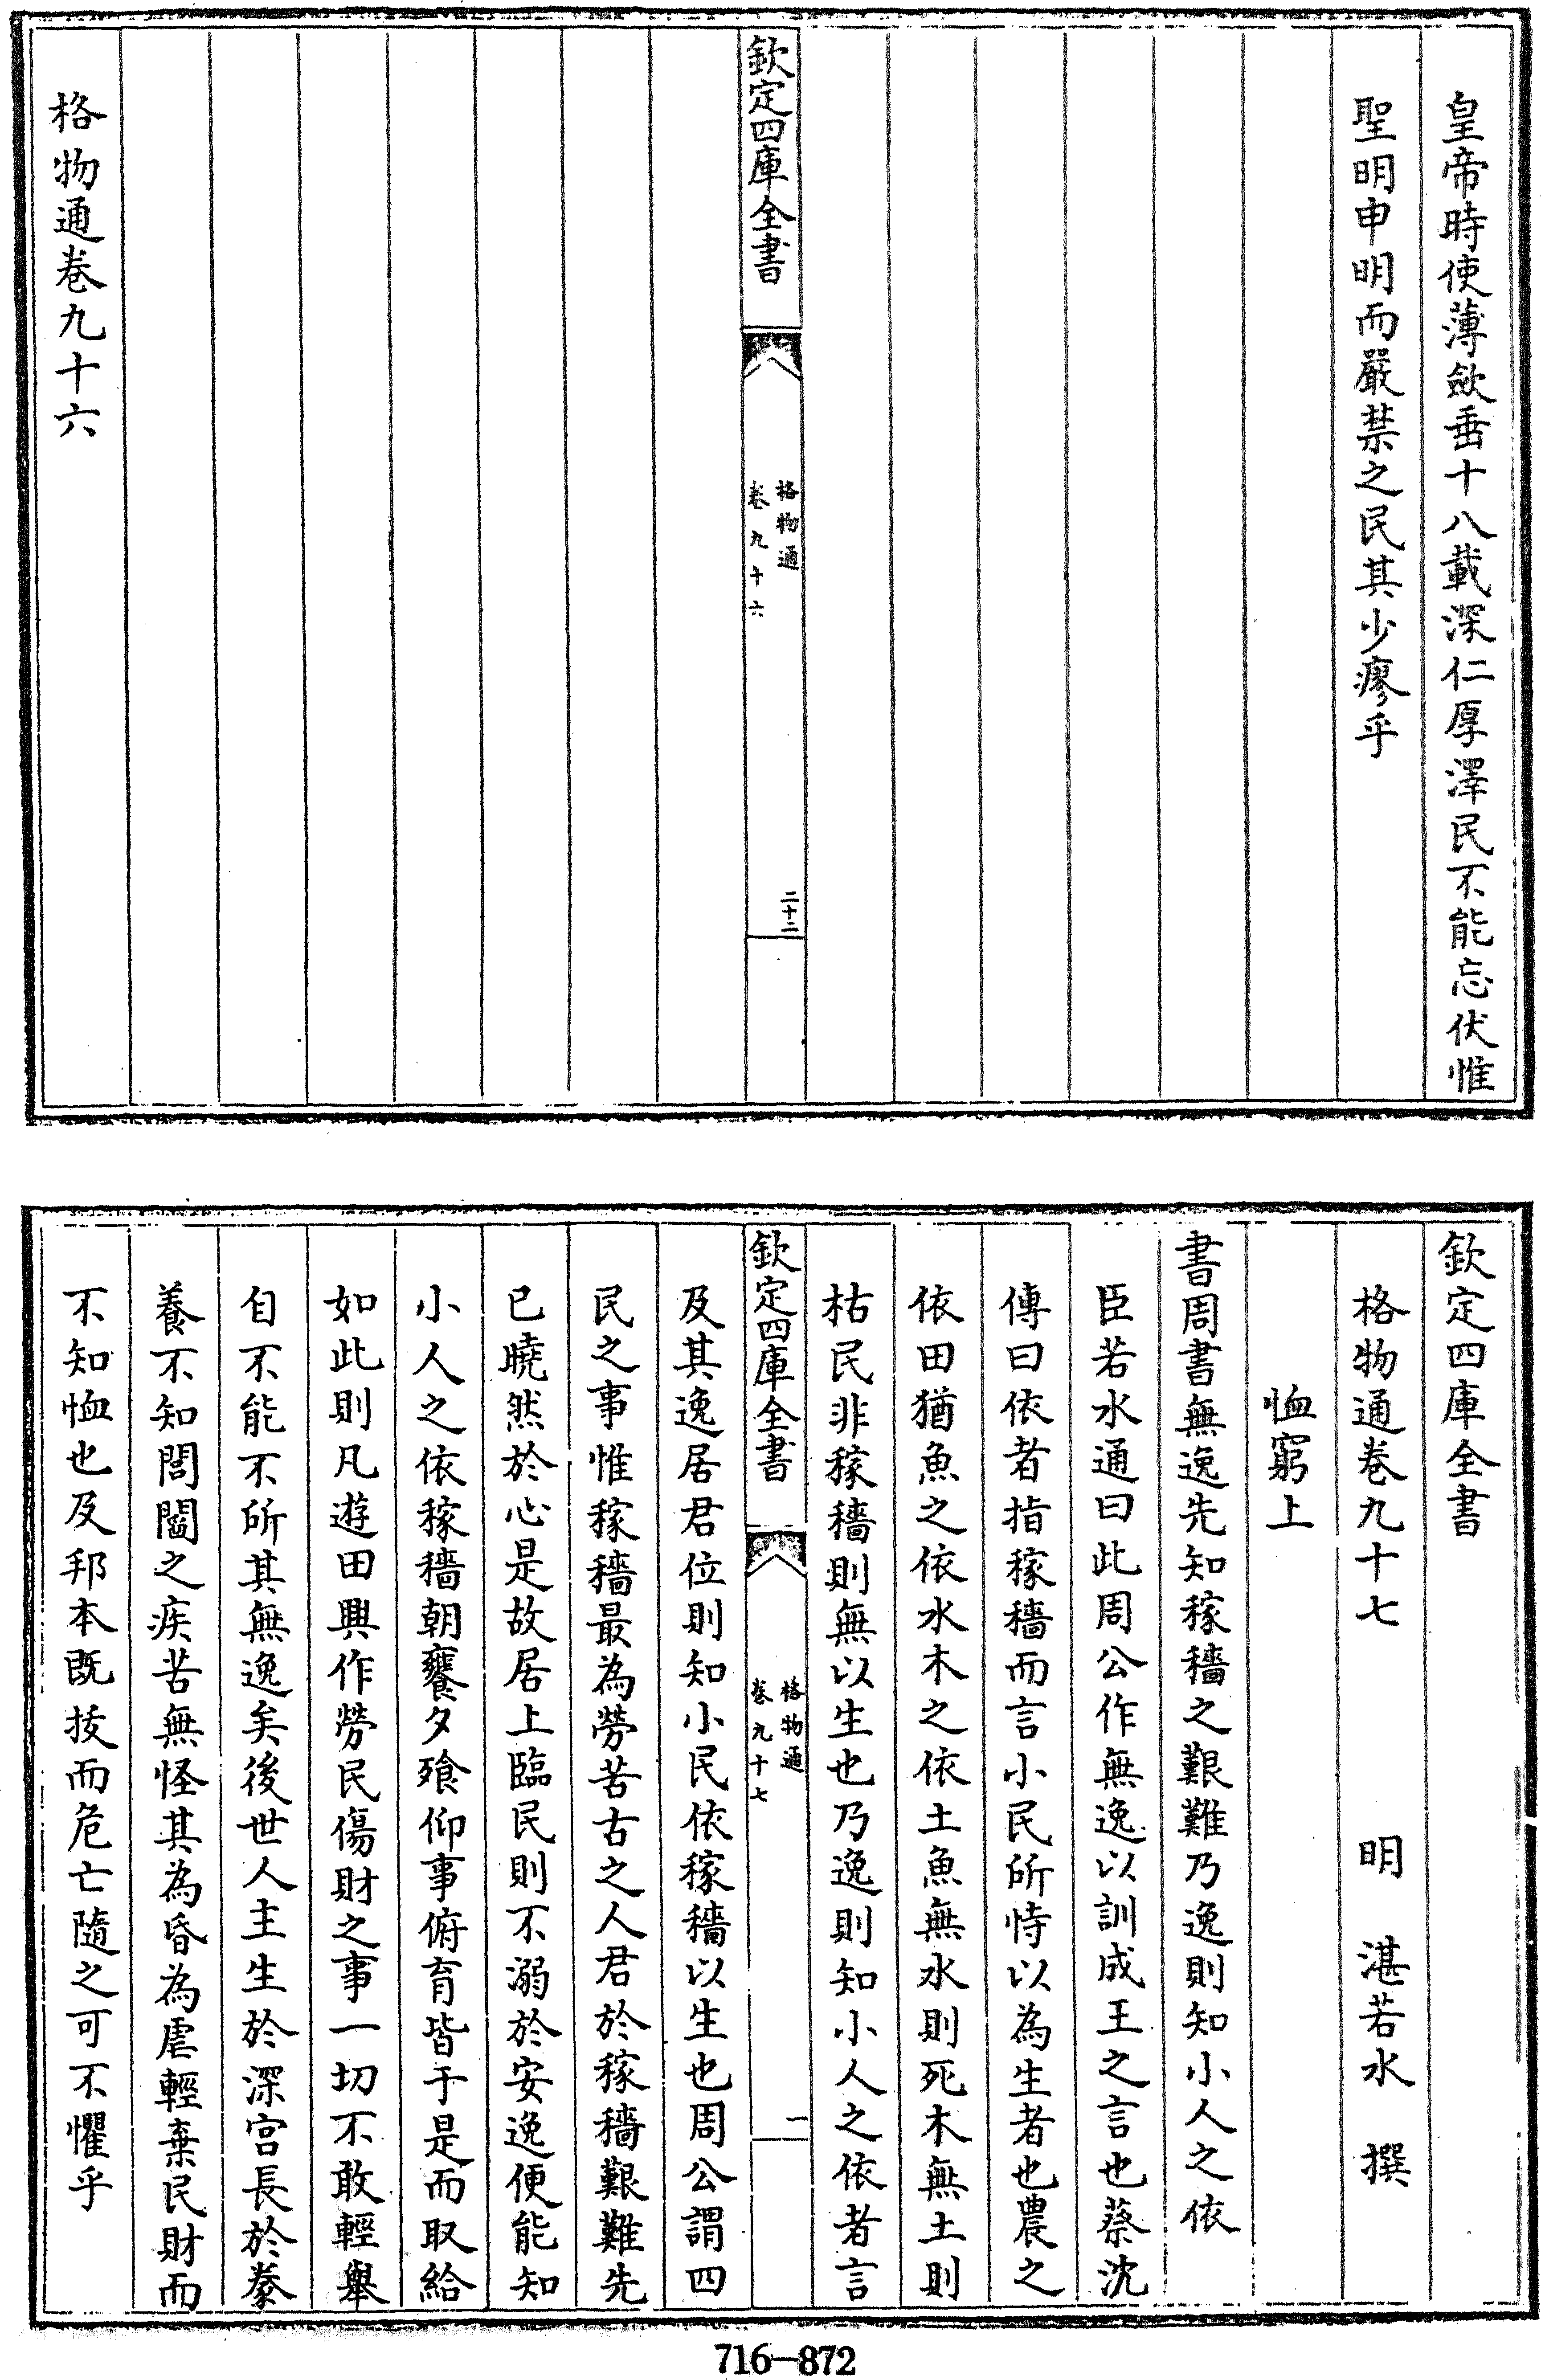 皇帝時使薄斂垂十八載深仁厚澤民不能忘伏惟
聖明申明而嚴禁之民其少瘳乎
欽定四庫全書
格物通
卷九十六
二十三
格物通卷九十六
欽定四庫全書
格物通卷九十七 明 湛若水 撰
恤窮上
書周書無逸先知稼穡之艱難乃逸則知小人之依
臣若水通曰此周公作無逸以訓成王之言也蔡沈
傳曰依者指稼穡而言小民所恃以為生者也農之
依田猶魚之依水木之依土魚無水則死木無土則
枯民非稼穡則無以生也乃逸則知小人之依者言
欽定四庫全書
格物通
卷九十七
一
及其逸居君位則知小民依稼穡以生也周公謂四
民之事惟稼穡最為勞苦古之人君於稼穡艱難先
已曉然於心是故居上臨民則不溺於安逸便能知
小人之依稼穡朝饔夕飱仰事俯育皆于是而取給
如此則凡遊田興作勞民傷財之事一切不敢輕舉
自不能不所其無逸矣後世人主生於深宫長於豢
養不知閭閻之疾苦無怪其為昏為虐輕棄民財而
不知恤也及邦本既拔而危亡隨之可不懼乎
716-872